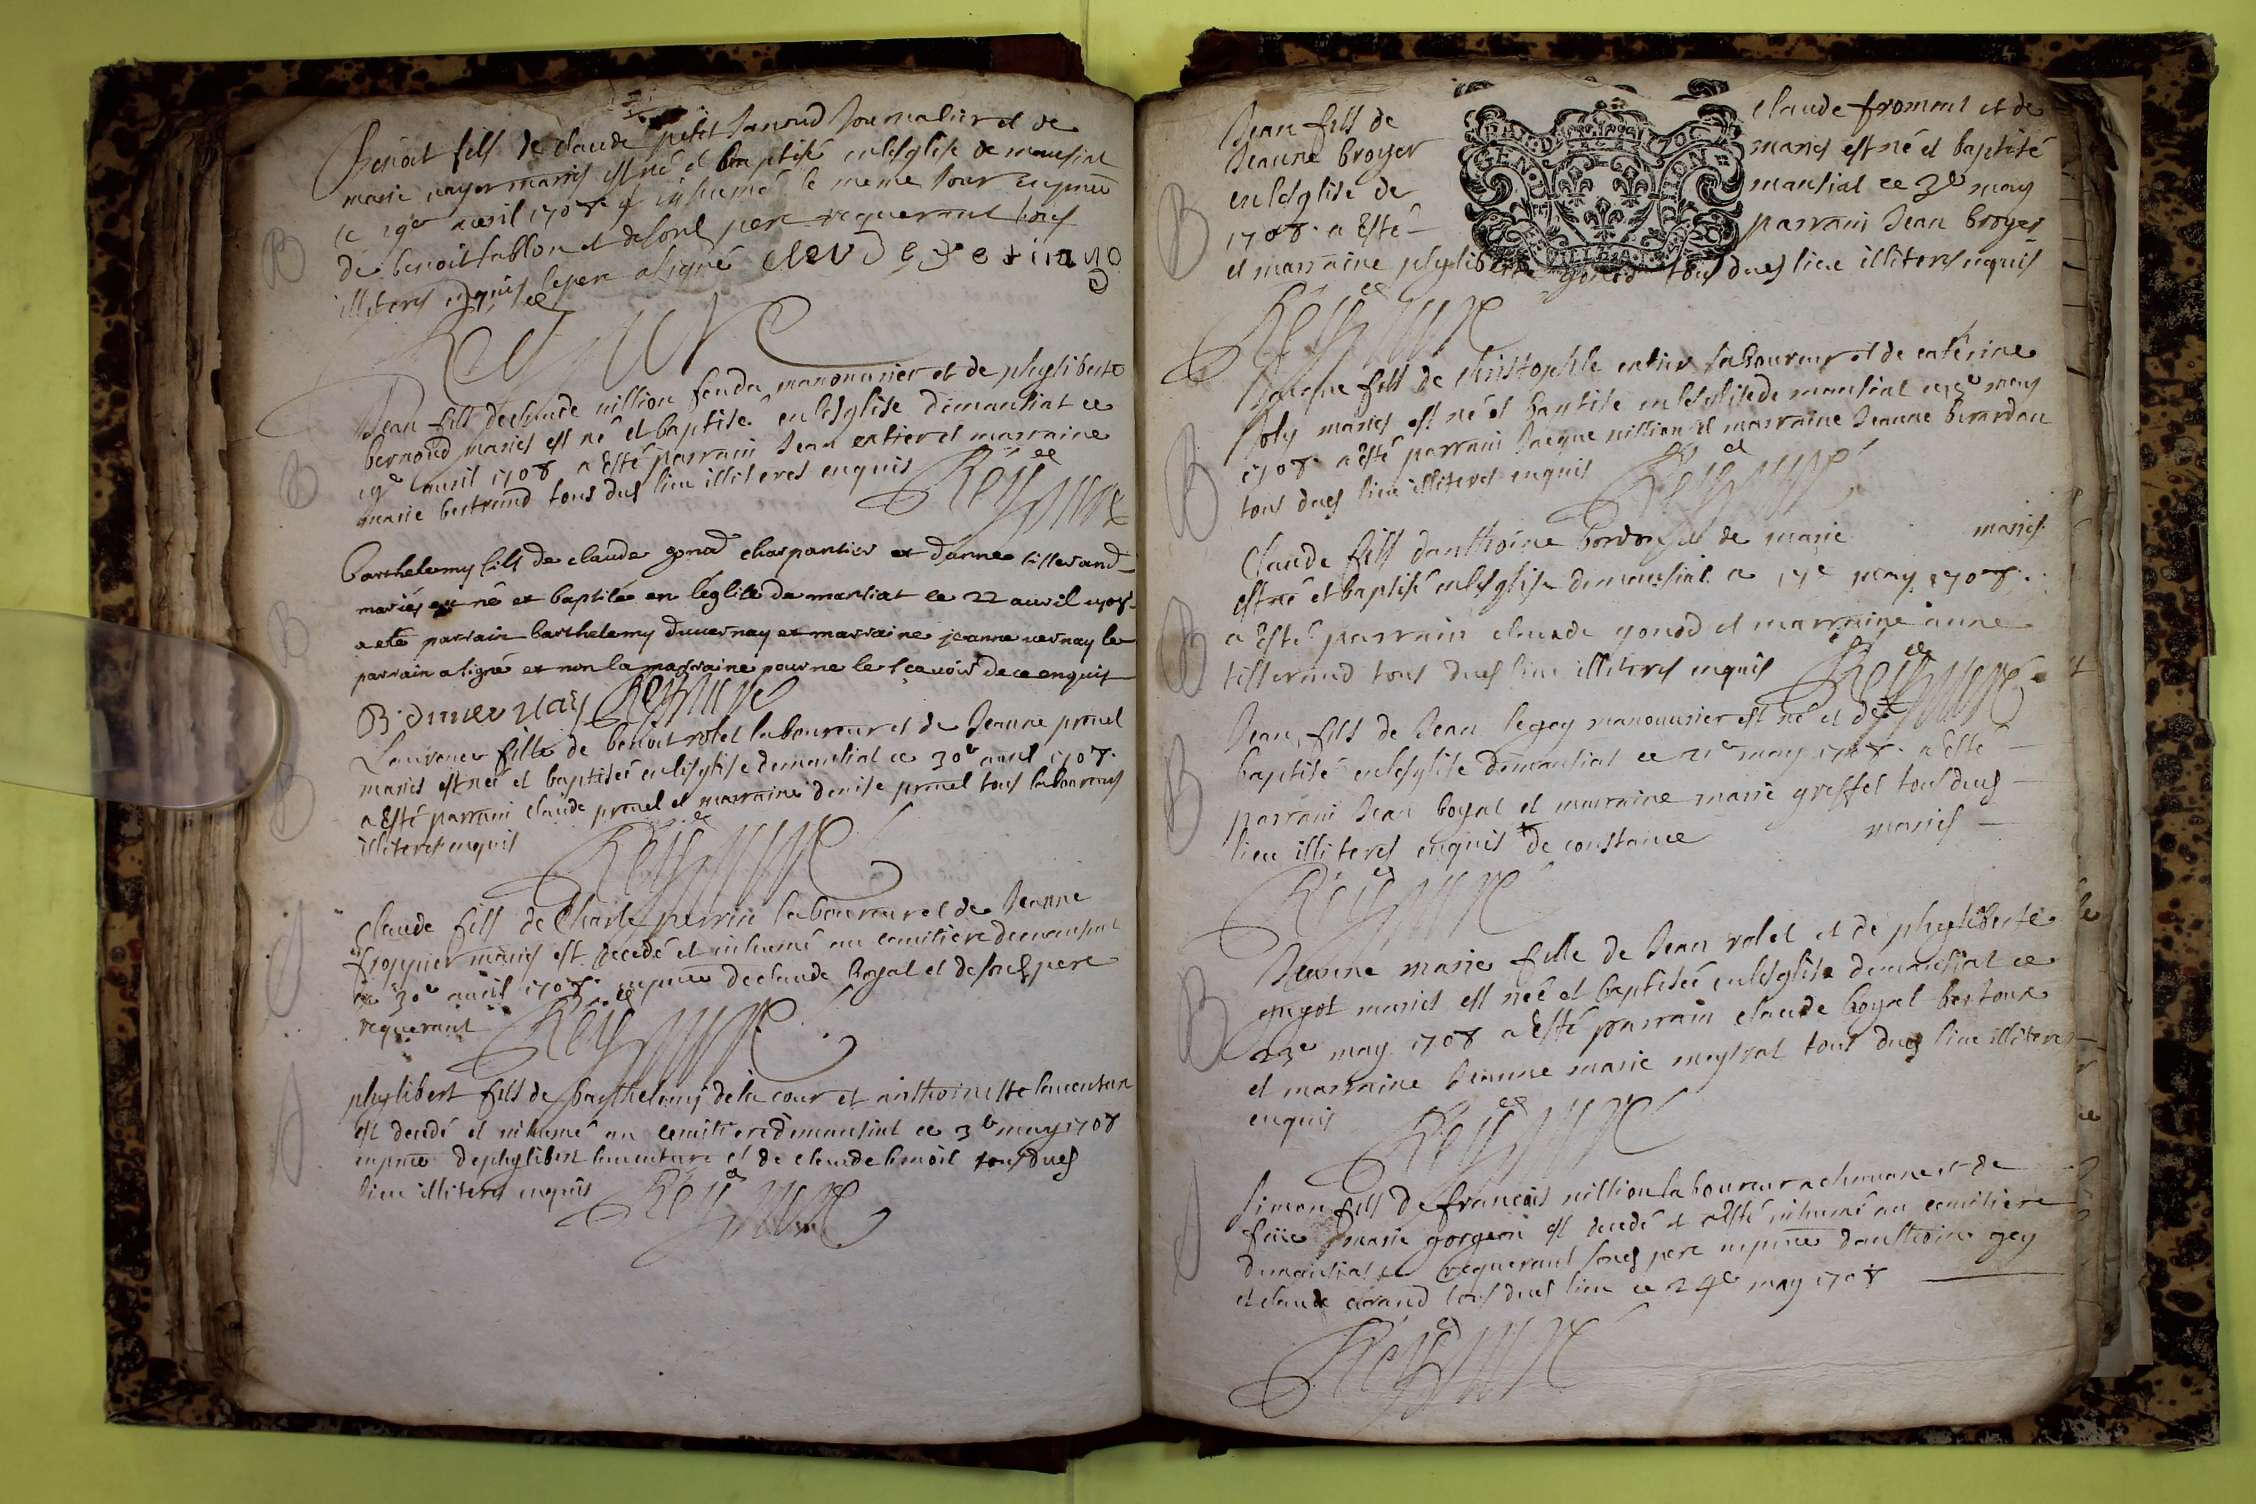 Benoit fils de claude petit Janoud Journalier et de
marie mayer mariés est né et baptisé en lesglise de mansiat
ce 19e avril 1708 et inhumé le meme Jour en pnce
de benoit sablon et desond pere requerant tous
illiteres enquis le pere a signé claude petit ianod
Reyssure
B
Jean fils declaude nillion fendu manouurier et de phyliberte
bernoud mariés est né et baptisé en lesglise demansiat ce
19e auril 1708 a Esté parrain Jean entier et marraine
marie bertrand tous dud lieu illiteres enquis
Reyssure
B
Barthelemy fils de claude gonod charpantier et danne tisserand
mariés est né et baptisé en leglise de mansiat ce 22 auril 1708
a eté parrain barthelemy duuernay et marraine jeanne uernay le
parrain a signé et non la marraine pour ne le sçauoir de ce enquis
B
B duuernay Reyssure
Laurence fille de benoit rolet laboureur et de Jeanne pruel
mariés est née et baptisée en lesglise demansiat ce 30e auril 1708
a Esté parrain claude pruel et marraine denise pruel tous laboureurs
illiteres enquis
Reyssure
B
claude fils de Charle perrin laboureur et de Jeanne
froppier mariés est decedé et inhumé au cemitiere demansiat
ce 30e auril 1708 en pnce declaude Boyat et desond pere
requerant
Reyssure
phylibert fils de barthelemy dela cour et anthoinette lauentur
est decedé et inhumé au cemitiere demansiat ce 3e may 1708
en pnce dephylibert lauenture et de claude benoit tous dud
lieu illiteres enquis
Reyssure
Jean fils de claude froment et de
Jeanne broyer mariés est né et baptisé
en lesglise de mansiat ce 3e may
1708 a Esté parrain Jean broyer
et marraine phyliberte gonod tous dud lieu illiteres enquis
GEN. D
Reyssure
B
Jacque fils de christophle entier laboureur et de caterine
Joly mariés est né et baptisé en lesglise de mansiat ce may
1708 a Esté parrain Jacque nillion et marraine Jeanne berardan
tous dud lieu illiteres enquis
Reyssure
B
Claude fils danthoine bordon et de marie mariés
est né et baptisé en lesglise demansiat ce 17e may 1708
a Esté parrain claude gonod et marraine anne
tisserand tous dud lieu illiteres enquis
Reyssure
B
Jean fils de Jean legey manouurier est né et
baptisé en lesglise demansiat ce 21e may 1708 a Esté
parrain Jean boyat et marraine marie greffet tous dud
lieu illiteres enquis de constance mariés
Reyssure
B
Jeanne marie fille de Jean rolet et de phyliberte
guyot mariés est née et baptisée en lesglise demansiat ce
23e may 1708 a Esté parrain claude boyat bertoux
et marraine Jeanne marie meytrat tous dud lieu illiteres
enquis
Reyssure
B
Simon fils de francois nillion laboureur a chauane et de
feüe marie gorgeon est decedé et a Esté inhumé au cemitiere
demansiat requerant sond pere en pnce danthoine gey
et claude tous dud lieu ce 24e may 1708
Reyssure